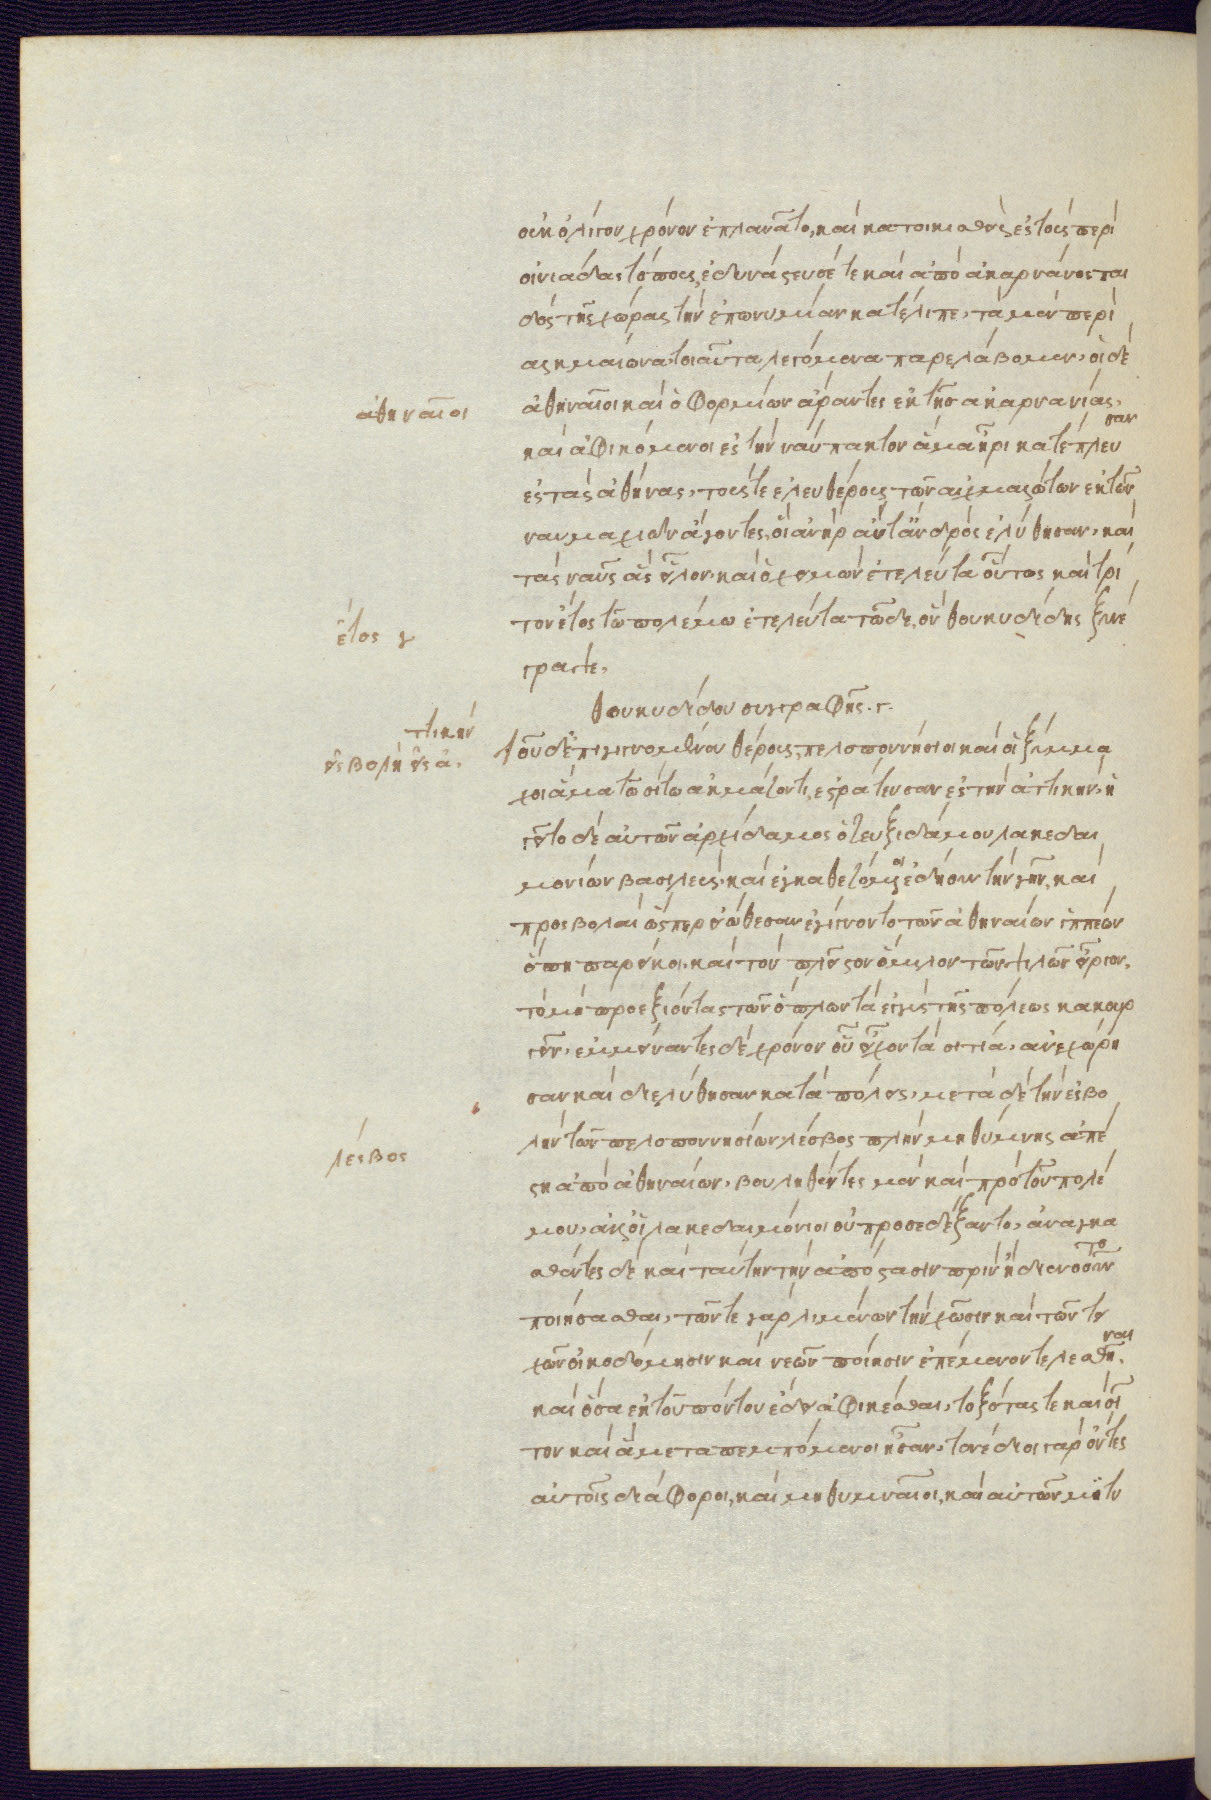 οὐκ ὀλίγον χρόνον ἐπλανᾶτο, καὶ κατοικισθεὶς ἐς τοὺς περὶ
οἰνιάδας τόπους, ἐδυνάστευσέ τε καὶ ἀπὸ ἀκαρνᾶνος παι
δὸς τῆς χώρας τὴν ἐπωνυμίαν κατέλιπε, τὰ μὲν περὶ
ἀλκμαίωνα, τοιαῦτα λεγόμενα παρελάβομεν, οἱ δὲ
ἀθηναῖοι
ἀθηναῖοι καὶ ὁ φορμίων ἄραντες ἐκ τῆς ἀκαρνανίας,
καὶ ἀφικόμενοι ἐς τὴν ναύπακτον ἅμα ἦρι κατέπλευσαν
ἐς τὰς ἀθήνας, τούς τε ἐλευθέρους τῶν αἰχμαλώτων ἐκ τῶν
ναυμαχιῶν ἄγοντες, οἳ ἀνὴρ ἀντ' ἀνδρὸς ἐλύθησαν, καὶ
τὰς ναῦς ἃς εἷλον, καὶ ὁ χειμὼν ἐτελεύτα οὗτος καὶ τρί
ἔτος γ
τον ἔτος τῶ πολέμω ἐτελεύτα τῶδε, ὃν θουκυδίδης ξυνέ
γραψε.
θουκυδίδου συγγραφῆς. γ.
εἰσβολὴ εἰς ἀττικήν
τοῦ δ' ἐπιγιγνομένου θέρους, πελοποννήσιοι καὶ οἱ ξύμμα
χοι ἅμα τῶ σίτω ἀκμάζοντι, ἐστράτευσαν ἐς τὴν ἀττικήν, ἡ
γεῖτο δὲ αὐτῶν ἀρχίδαμος ὁ ζευξιδάμου λακεδαι
μονίων βασιλεύς, καὶ ἐγκαθεζόμενοι ἐδήουν τὴν γῆν, καὶ
προσβολαὶ ὥσπερ εἰώθεσαν ἐγίγνοντο τῶν ἀθηναίων ἱππέων
ὅπη παρείκοι, καὶ τὸν πλεῖστον ὅμιλον τῶν ψιλῶν εἶργον,
τὸ μὴ προεξιόντας τῶν ὅπλων τὰ ἐγγὺς τῆς πόλεως κακουρ
γεῖν, ἐμμείναντες δὲ χρόνον οὗ εἶχον τὰ σιτία, ἀνεχώρη
σαν καὶ διελύθησαν κατὰ πόλεις, μετὰ δὲ τὴν ἐσβο
λέσβος
λὴν τῶν πελοποννησίων, λέσβος πλὴν μηθύμνης ἀπέ
στη ἀπὸ ἀθηναίων, βουληθέντες μὲν καὶ πρὸ τοῦ πολέ
μου, ἀλλ' οἱ λακεδαιμόνιοι οὐ προσεδέξαντο, ἀναγκα
σθέντες δὲ καὶ ταύτην τὴν ἀπόστασιν πρότερον ἢ διενοοῦντο
ποιήσασθαι, τῶν τε γὰρ λιμένων τὴν χῶσιν καὶ τῶν τει
χῶν οἰκοδόμησιν καὶ νεῶν ποίησιν ἐπέμενον τελεσθῆναι.
καὶ ὅσα ἐκ τοῦ πόντου ἔδει ἀφικέσθαι, τοξότας τε καὶ σῖ
τον καὶ ἃ μεταπεμπόμενοι ἦσαν, τενέδιοι γὰρ ὄντες
αὐτοῖς διάφοροι, καὶ μηθυμναῖοι, καὶ αὐτῶν μιτυ